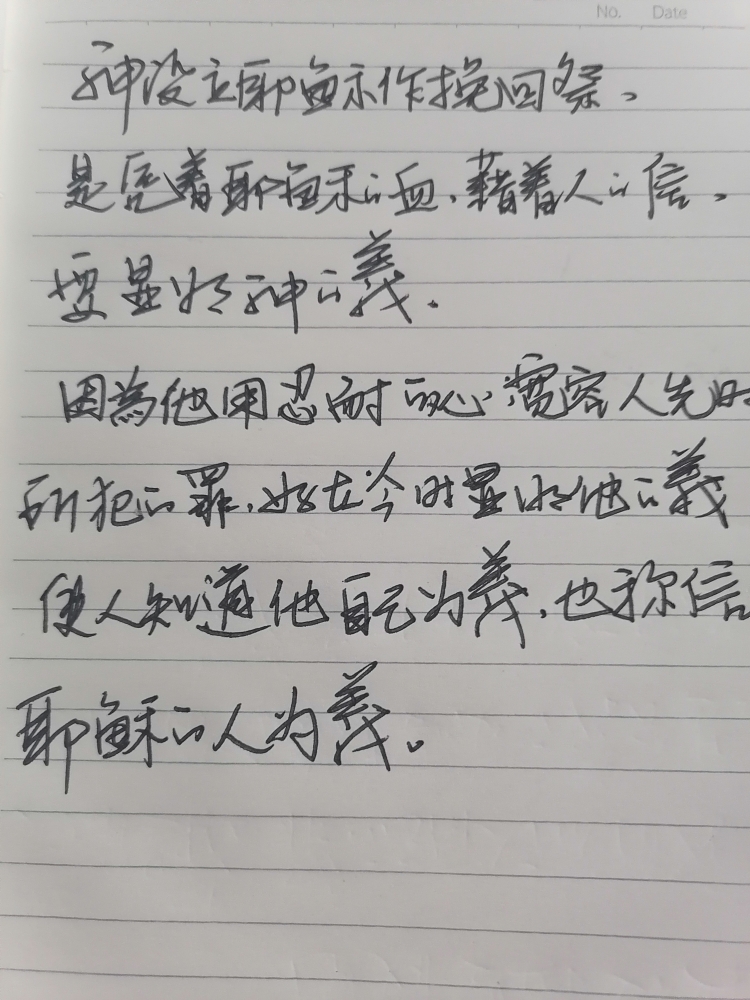 No. Date
神设立耶稣作挽回祭、
是凭着耶稣的血、藉着人的信、
要显明神的義.
因為他用忍耐的心寬容人先时
所犯的罪、好在今时显明他的義
使人知道他自己为義、也称信
耶稣的人为義。